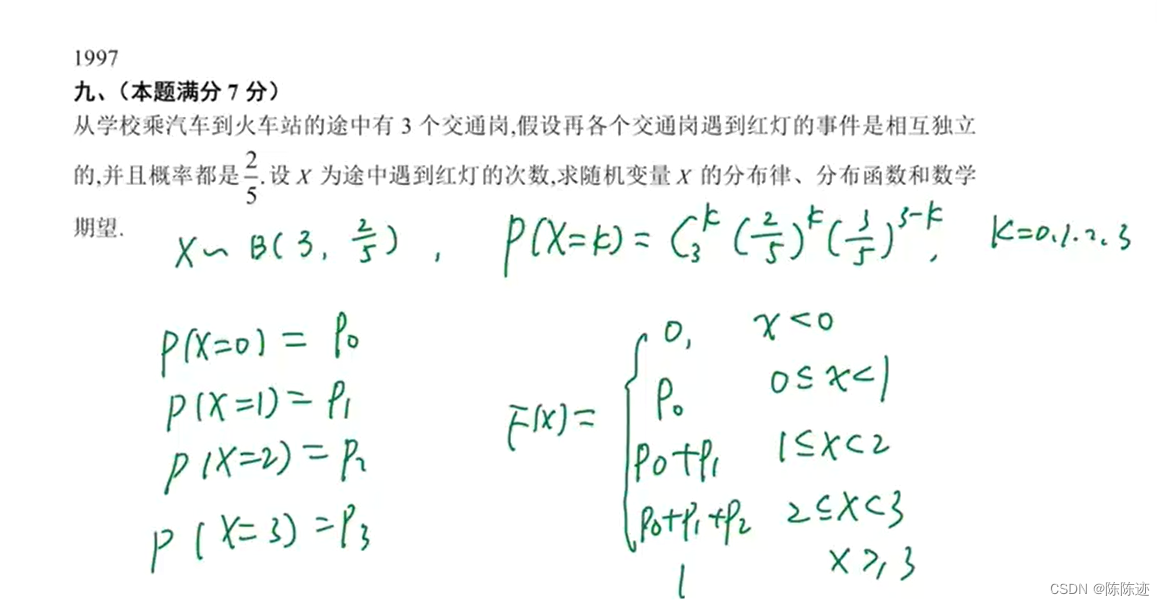 1997
九、（本题满分 7 分）
从学校乘汽车到火车站的途中有 3 个交通岗,假设再各个交通岗遇到红灯的事件是相互独立
的,并且概率都是 2/5 .设 X 为途中遇到红灯的次数,求随机变量 X 的分布律、分布函数和数学
期望.
X ~ B(3, 2/5) , P(X=k) = C₃ᵏ (2/5)ᵏ (3/5)³⁻ᵏ , K=0,1.2,3
P(X=0) = P₀
P(X=1) = P₁
P(X=2) = P₂
P(X=3) = P₃
F(x) = {
0, x<0
P₀ 0≤x<1
P₀+P₁ 1≤x<2
P₀+P₁+P₂ 2≤x<3
1 x≥3
CSDN @陈陈迹